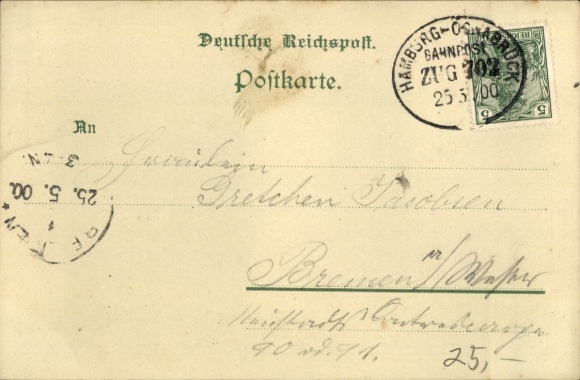 Deutsche Reichspost.
Postkarte.
HAMBURG-OSNABRÜCK
BAHNPOST
ZUG 702
25 5 00
REICHSPOST
5 5
An
Fräulein
Gretchen Jacobsen
Bremen a/Weser
Neustadt
90 od. 91.
25,-
25. 5. 00.
3-4N.